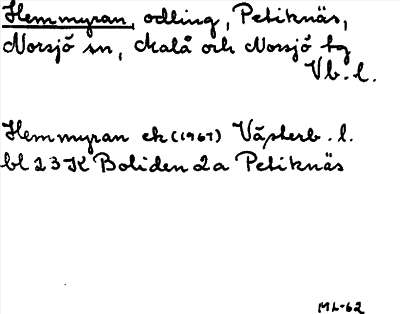 Hemmyran, odling, Petiknäs,
Norsjö sn, Malå och Norsjö tg
Vb. l.
Hemmyran ek (1967) Västerb. l.
bl 23K Boliden 2a Petiknäs
ML-62